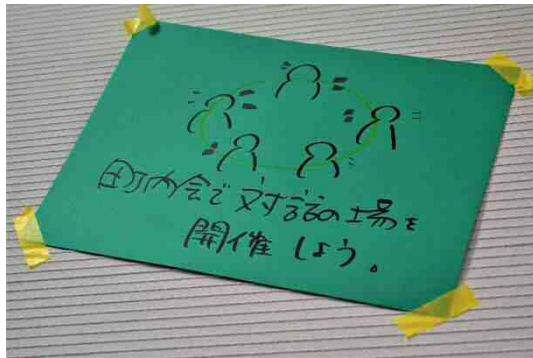 町内会で対話の場を
開催しよう。